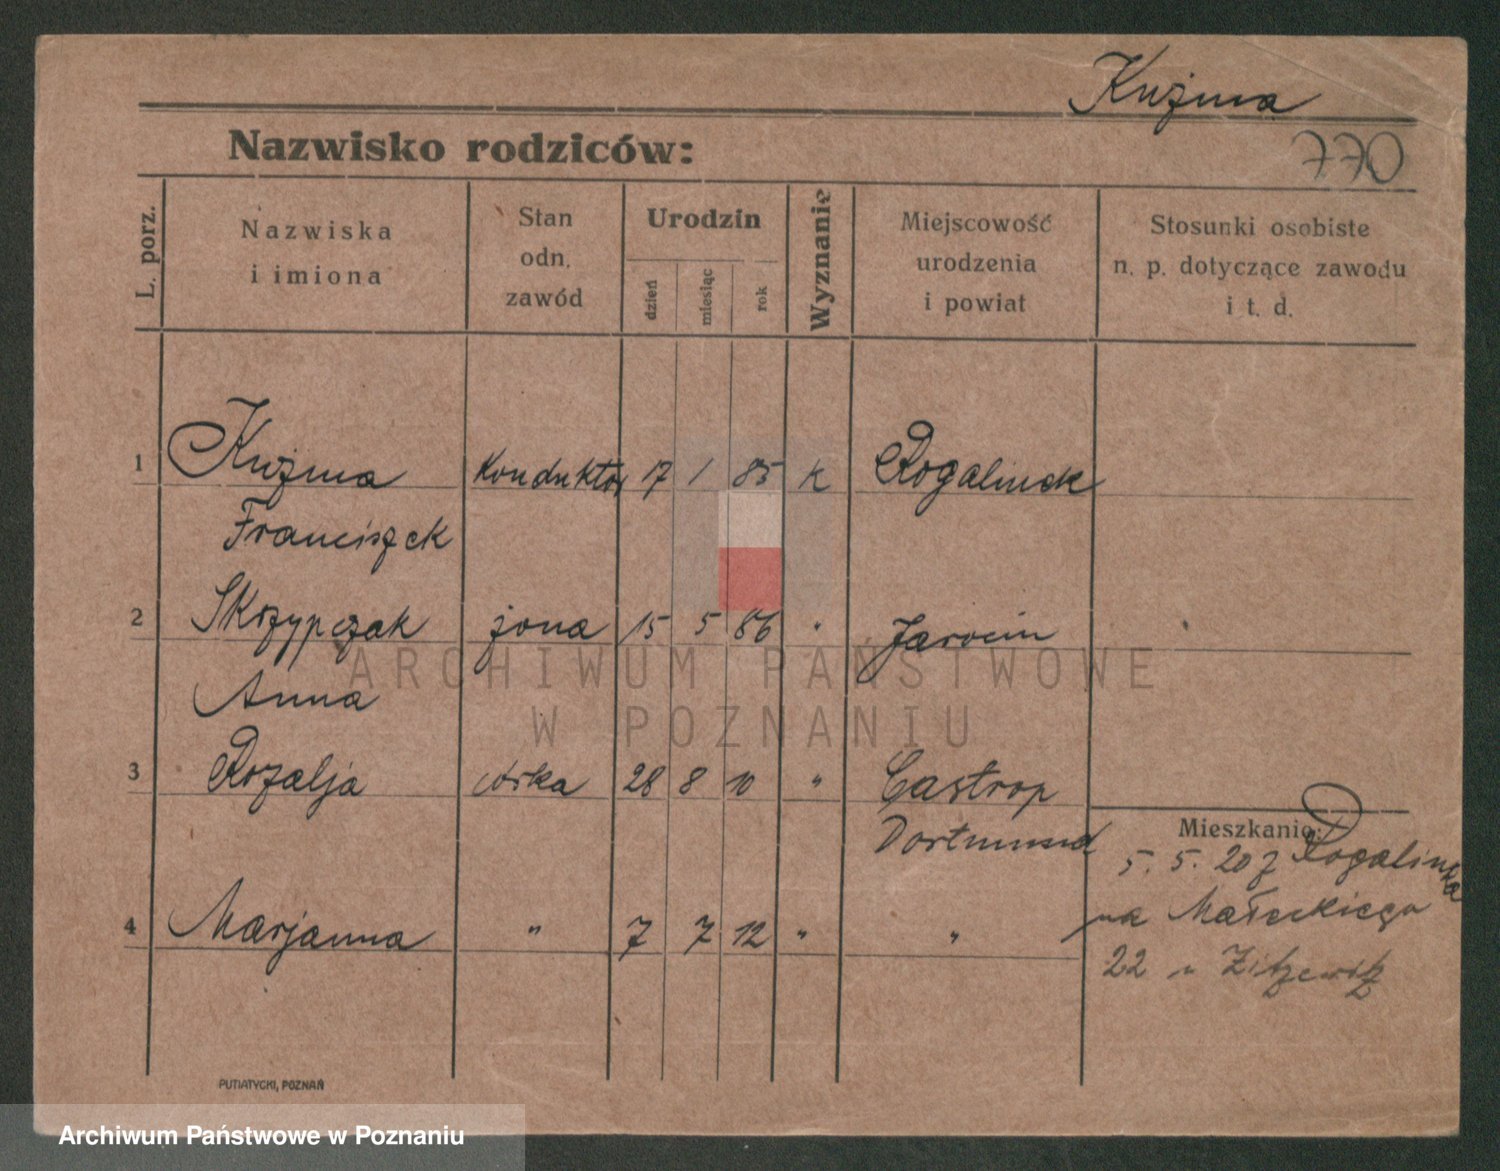 Kuźma
770
Nazwisko rodziców:
L. porz.
Nazwiska
i imiona
Stan
odn.
zawód
Urodzin
dzień
miesiąc
rok
Wyznanie
Miejscowość
urodzenia
i powiat
Stosunki osobiste
n. p. dotyczące zawodu
i t. d.
1 Kuźma Konduktor 17 1 85 K Rogalinek
Franciszek
2 Skrzypczak żona 15 5 86 " Jarocin
Anna
3 Rozalja córka 28 8 10 " Castrop
Dortmund
Mieszkanie:
5. 5. 20 z Rogalinka
na Małeckiego
22 u Zitzewitz
4 Marjanna " 7 7 12 " "
PUTIATYCKI, POZNAŃ
ARCHIWUM PAŃSTWOWE
W POZNANIU
Archiwum Państwowe w Poznaniu